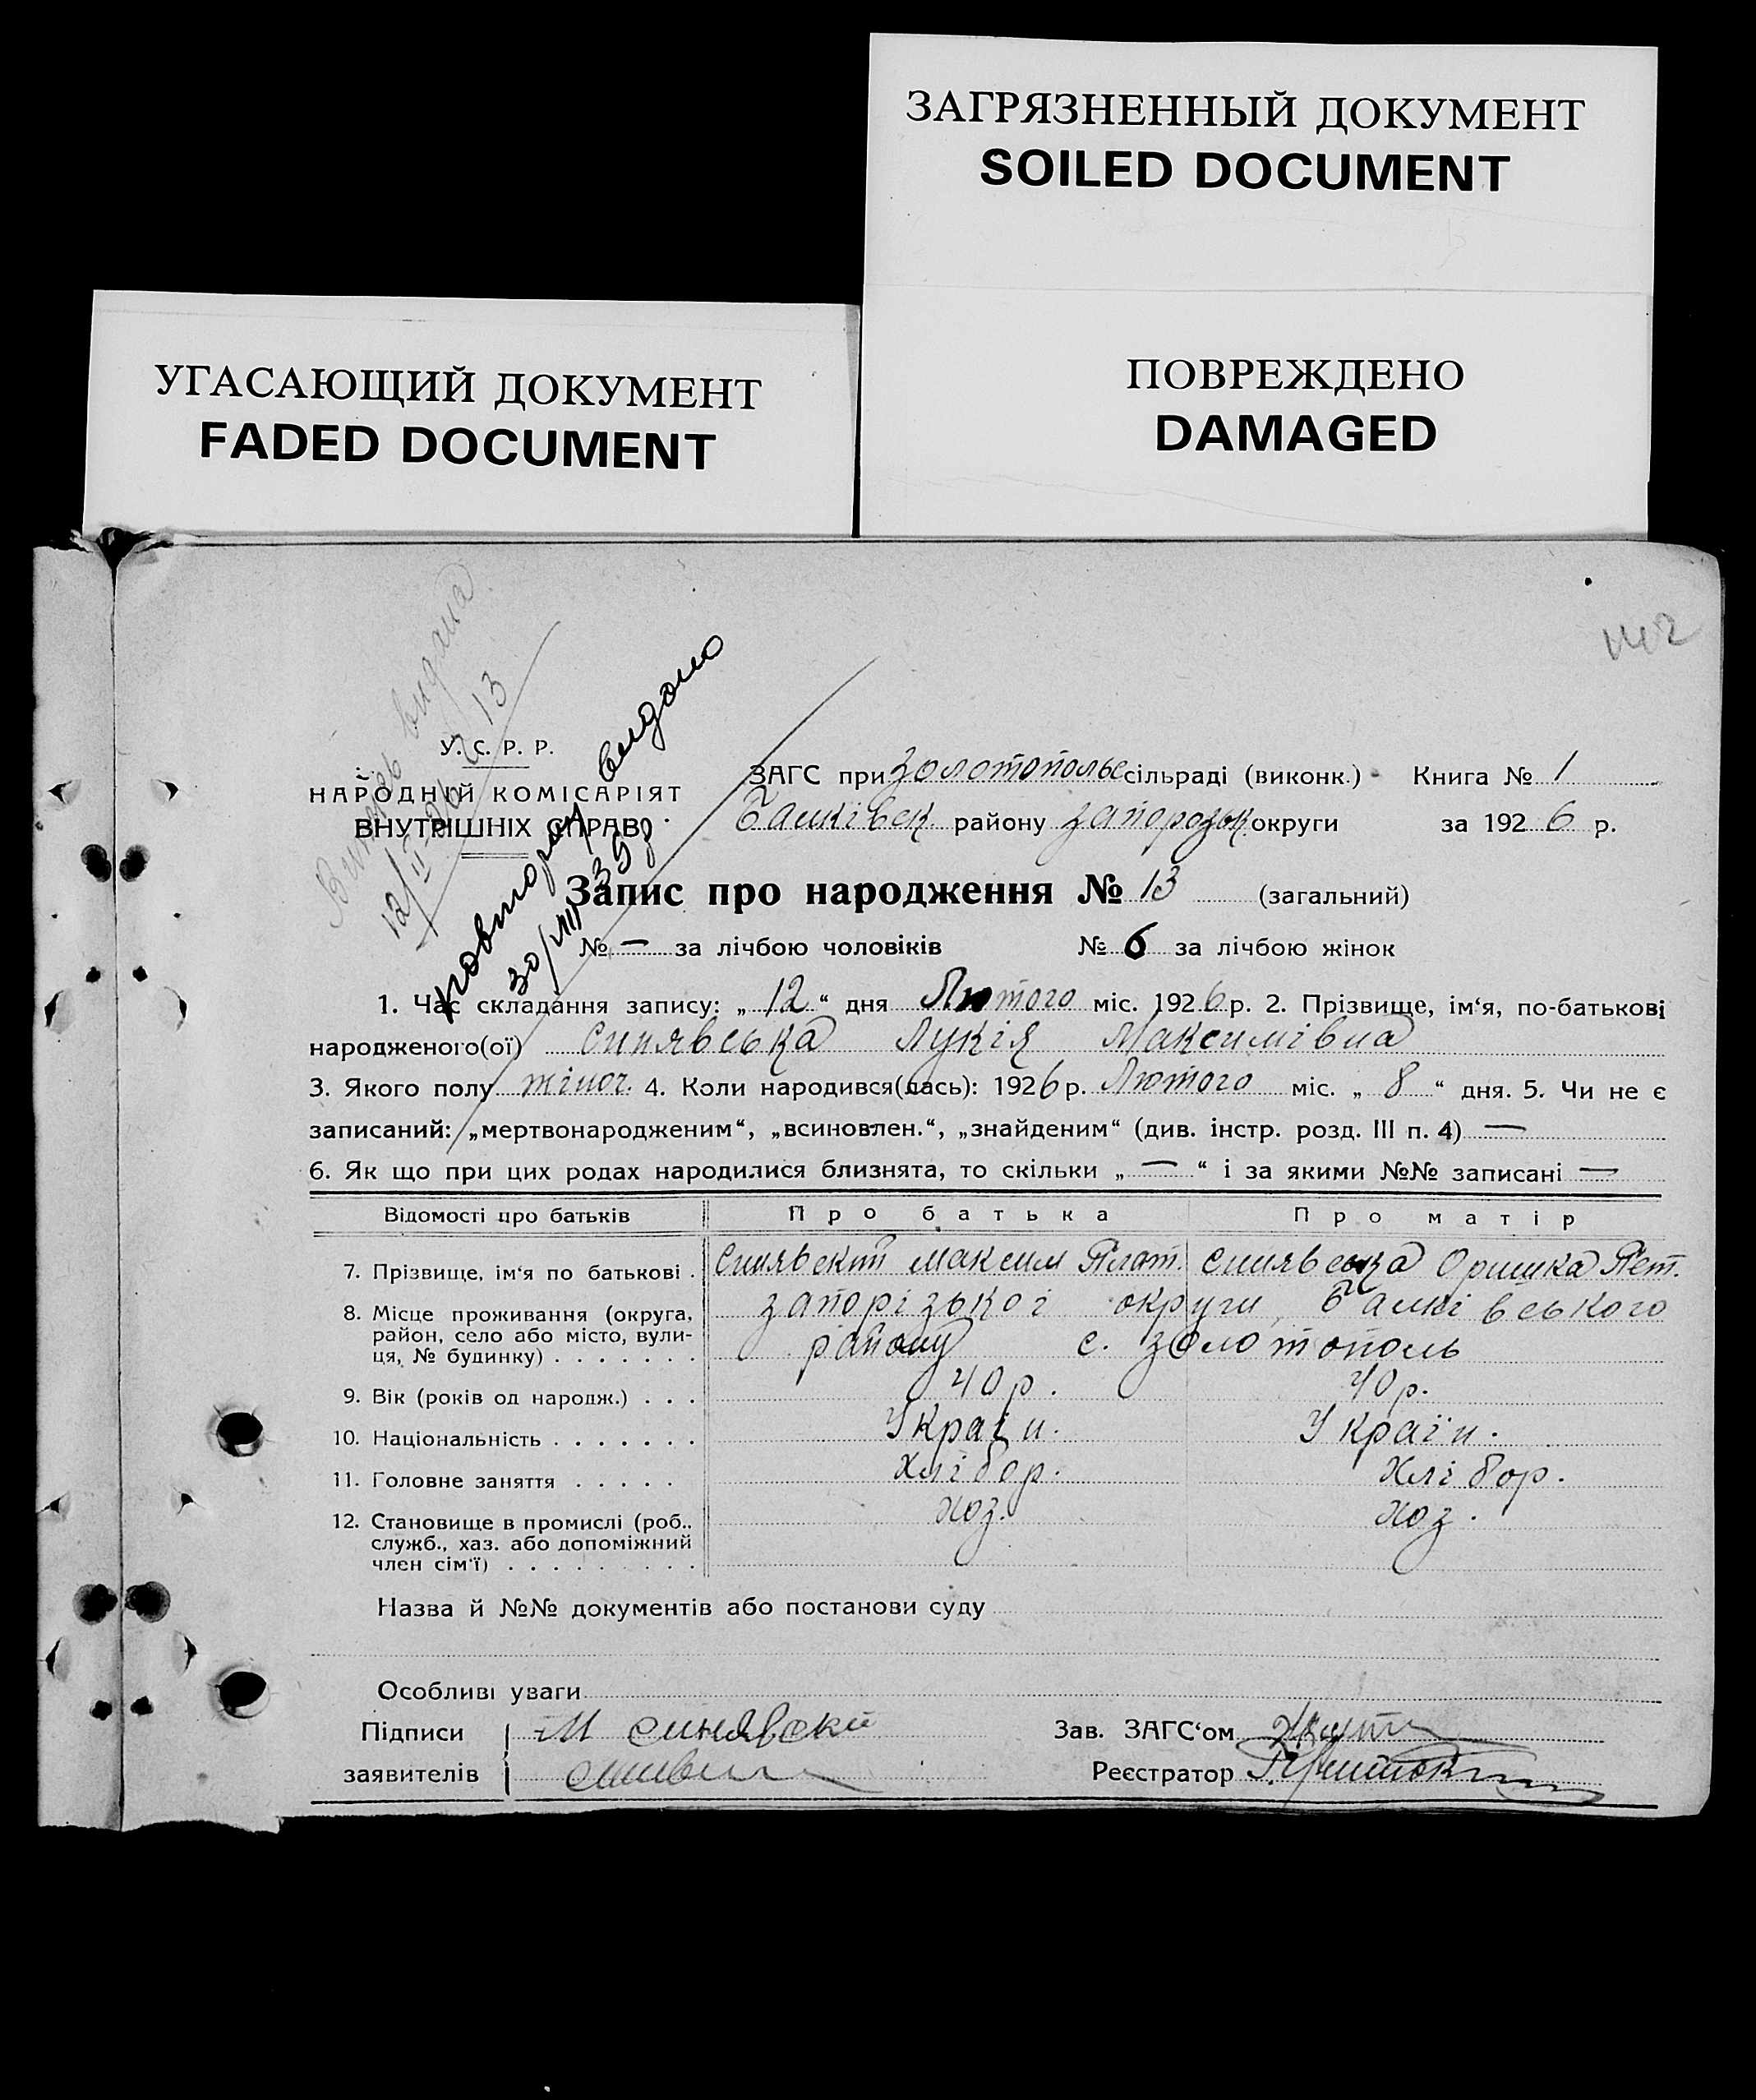 ЗАГРЯЗНЕННЫЙ ДОКУМЕНТ
SOILED DOCUMENT
УГАСАЮЩИЙ ДОКУМЕНТ
FADED DOCUMENT
ПОВРЕЖДЕНО
DAMAGED
Випись видана
12/II 26 13
повторно видано
30/VIII 39р
У. С. Р. Р.
НАРОДНІЙ КОМІСАРІЯТ
ВНУТРІШНІХ СПРАВ
ЗАГС при золотопольс сільраді (виконк.) Книга № 1
району запорозьк округи за 1926 р.
Запис про народження № 13 (загальний)
№ — за лічбою чоловіків № 6 за лічбою жінок
1. Час складання запису: „ 12 “ дня Лютого міс. 1926 р. 2. Прізвище, ім‘я, по-батькові
народженого(ої) Синявська Лукія Максимівна
3. Якого полу жіноч. 4. Коли народився(лась): 1926 р. Лютого міс. „ 8 “ дня. 5. Чи не є
записаний: „мертвонародженим“, „всиновлен.“, „знайденим“ (див. інстр. розд. III п. 4) —
6. Як що при цих родах народилися близнята, то скільки „ — “ і за якими №№ записані —
Відомості про батьків Про батька Про матір
7. Прізвище, ім‘я по батькові . Синявский Максим Плат. Синявська Оришка Пет.
8. Місце проживання (округа, запорізької округи,
район, село або місто, вули- району с. золотополь
ця, № будинку) . . . . . . .
9. Вік (років од народж.) . . . 40 р. 40 р.
10. Національність . . . . . . . Україн. Україн.
11. Головне заняття . . . . . Хлібор. Хлібор.
12. Становище в промислі (роб., хоз. хоз.
служб., хаз. або допоміжний
член сім‘ї) . . . . . . . . .
Назва й №№ документів або постанови суду
Особливі уваги
Підписи М Синявски Зав. ЗАГС‘ом
заявителів Реєстратор